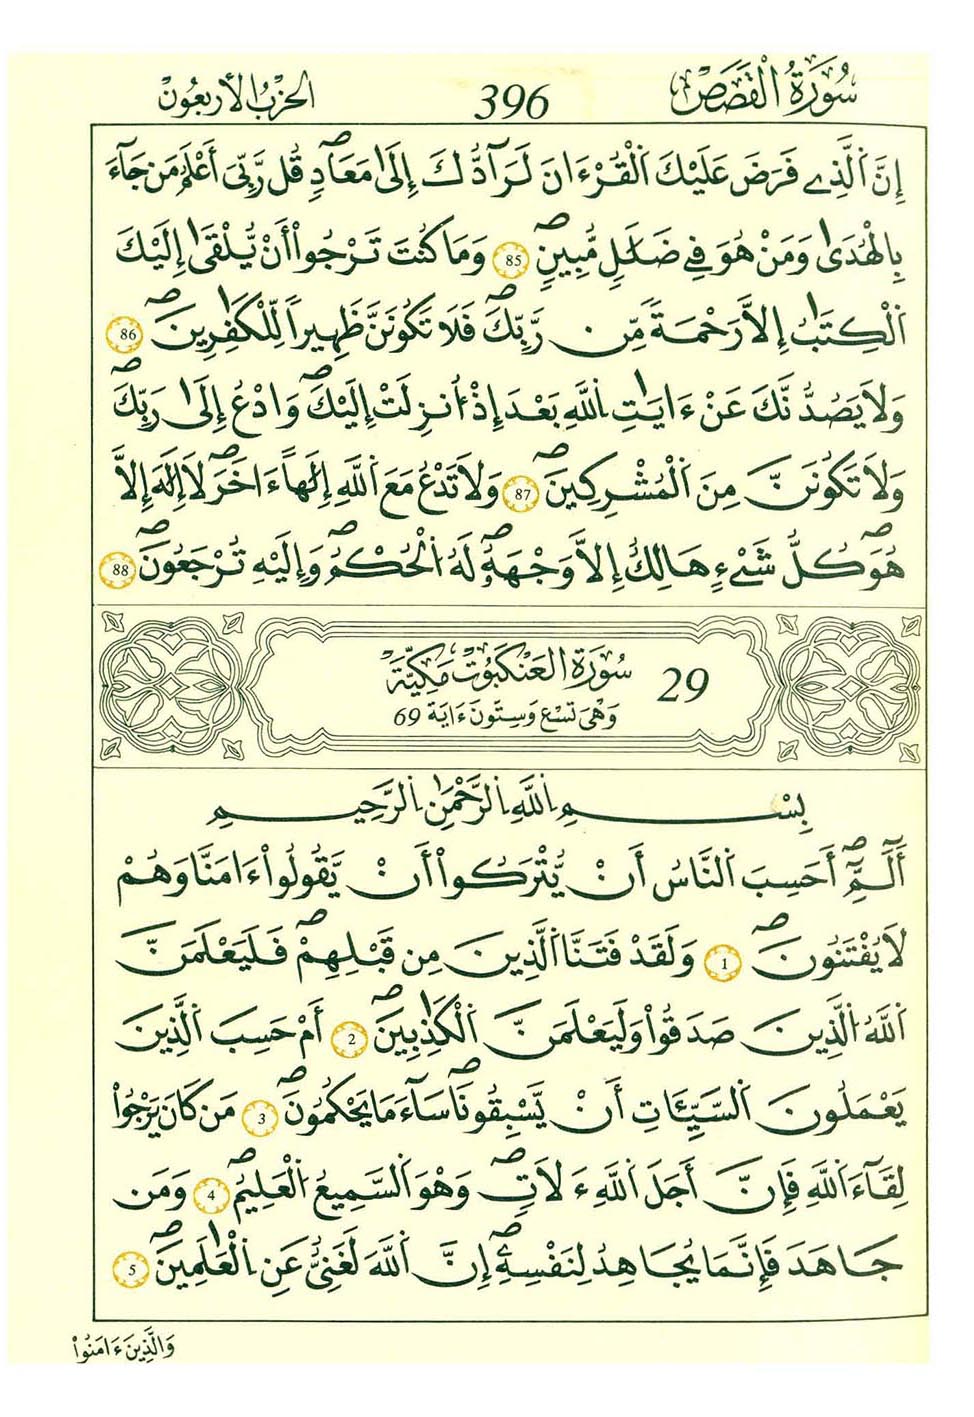 سُورَةُ الْقَصَصِ 396 الحِزْبُ الأَرْبَعُونَ
إِنَّ اَلَّذِے فَرَضَ عَلَيْكَ اَلْقُرْءَانَ لَرَآدُّكَ إِلَىٰ مَعَادٖۖ قُل رَّبِّىٓ أَعْلَمُ مَن جَآءَ
بِالْهُدَىٰ وَمَنْ هُوَ فِے ضَلَٰلٖ مُّبِينٖۖ 85 وَمَا كُنتَ تَرْجُواْ أَنْ يُّلْقَىٰٓ إِلَيْكَ
اَلْكِتَٰبُ إِلاَّ رَحْمَةً مِّن رَّبِّكَۖ فَلَا تَكُونَنَّ ظَهِيراً لِّلْكَٰفِرِينَۖ 86
وَلَا يَصُدُّنَّكَ عَنْ ءَايَٰتِ اِللَّهِ بَعْدَ إِذُ ا۟نزِلَتِ اِلَيْكَۖ وَادْعُ إِلَىٰ رَبِّكَۖ
وَلَا تَكُونَنَّ مِنَ اَلْمُشْرِكِينَۖ 87 وَلَا تَدْعُ مَعَ اَللَّهِ إِلَٰهاً ءَاخَرَۖ لَا إِلَٰهَ إِلاَّ
هُوَۖ كُلُّ شَےْءٍ هَالِكٌ إِلاَّ وَجْهَهُۥۖ لَهُ اُلْحُكْمُۖ وَإِلَيْهِ تُرْجَعُونَۖ 88
29 سُورَةُ العَنْكَبُوتِ مَكِيَّة
وَهْىَ تِسْع وَسِتُّونَ ءَايَة 69
بِسْمِ اِللَّهِ اِلرَّحْمَٰنِ اِلرَّحِيمِ
أَلَٓمِّٓۖ أَحَسِبَ اَلنَّاسُ أَنْ يُّتْرَكُواْ أَنْ يَّقُولُواْ ءَامَنَّا وَهُمْ
لَا يُفْتَنُونَۖ 1 وَلَقَدْ فَتَنَّا اَلَّذِينَ مِن قَبْلِهِمْۖ فَلَيَعْلَمَنَّ
اَللَّهُ اُلَّذِينَ صَدَقُواْ وَلَيَعْلَمَنَّ اَلْكَٰذِبِينَۖ 2 أَمْ حَسِبَ اَلَّذِينَ
يَعْمَلُونَ اَلسَّيِّـَٔاتِ أَنْ يَّسْبِقُونَاۖ سَآءَ مَا يَحْكُمُونَۖ 3 مَن كَانَ يَرْجُواْ
لِقَآءَ اَللَّهِ فَإِنَّ أَجَلَ اَللَّهِ ءَلَاتٖۖ وَهْوَ اَلسَّمِيعُ اُلْعَلِيمُۖ 4 وَمَن
جَاهَدَ فَإِنَّمَا يُجَاهِدُ لِنَفْسِهِۦۖ إِنَّ اَللَّهَ لَغَنِىٌّ عَنِ اِلْعَٰلَمِينَۖ 5
وَالَّذِينَ ءَامَنُواْ